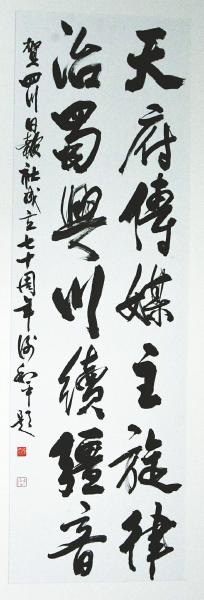 天府傳媒主旋律
治蜀興川續疆音
賀四川日報社成立七十周年謝和平題